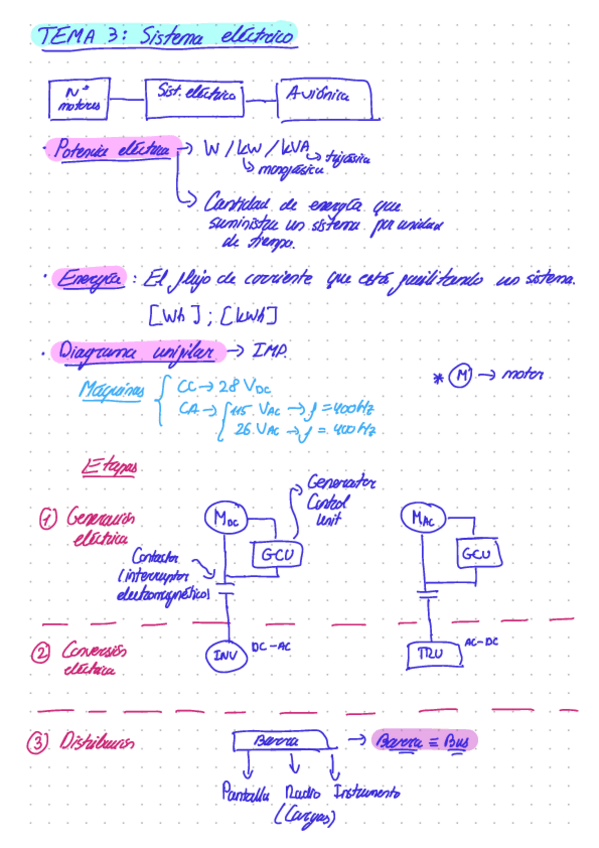 TEMA 3: Sistema eléctrico
Nº motores
Sist. eléctrico
Aviónica
· Potencia eléctrica → W / kW / kVA
↳ monofásica
↳ trifásica
↳ Cantidad de energía que
suministra un sistema por unidad
de tiempo.
· Energía : El flujo de corriente que está facilitando un sistema.
[Wh] ; [kWh]
· Diagrama unifilar → IMP.
Máquinas
CC → 28 VDC
CA → 115 VAC → f = 400 Hz
26 VAC → f = 400 Hz
* M → motor
Etapas
① Generación
eléctrica
MDC
GCU
Generator
Control
Unit
Contactor
(interruptor
electromagnético)
MAC
GCU
② Conversión
eléctrica
INV
DC-AC
TRU
AC-DC
③ Distribución
Barra
→ Barra ≡ Bus
Pantalla Radio Instrumento
(Cargas)